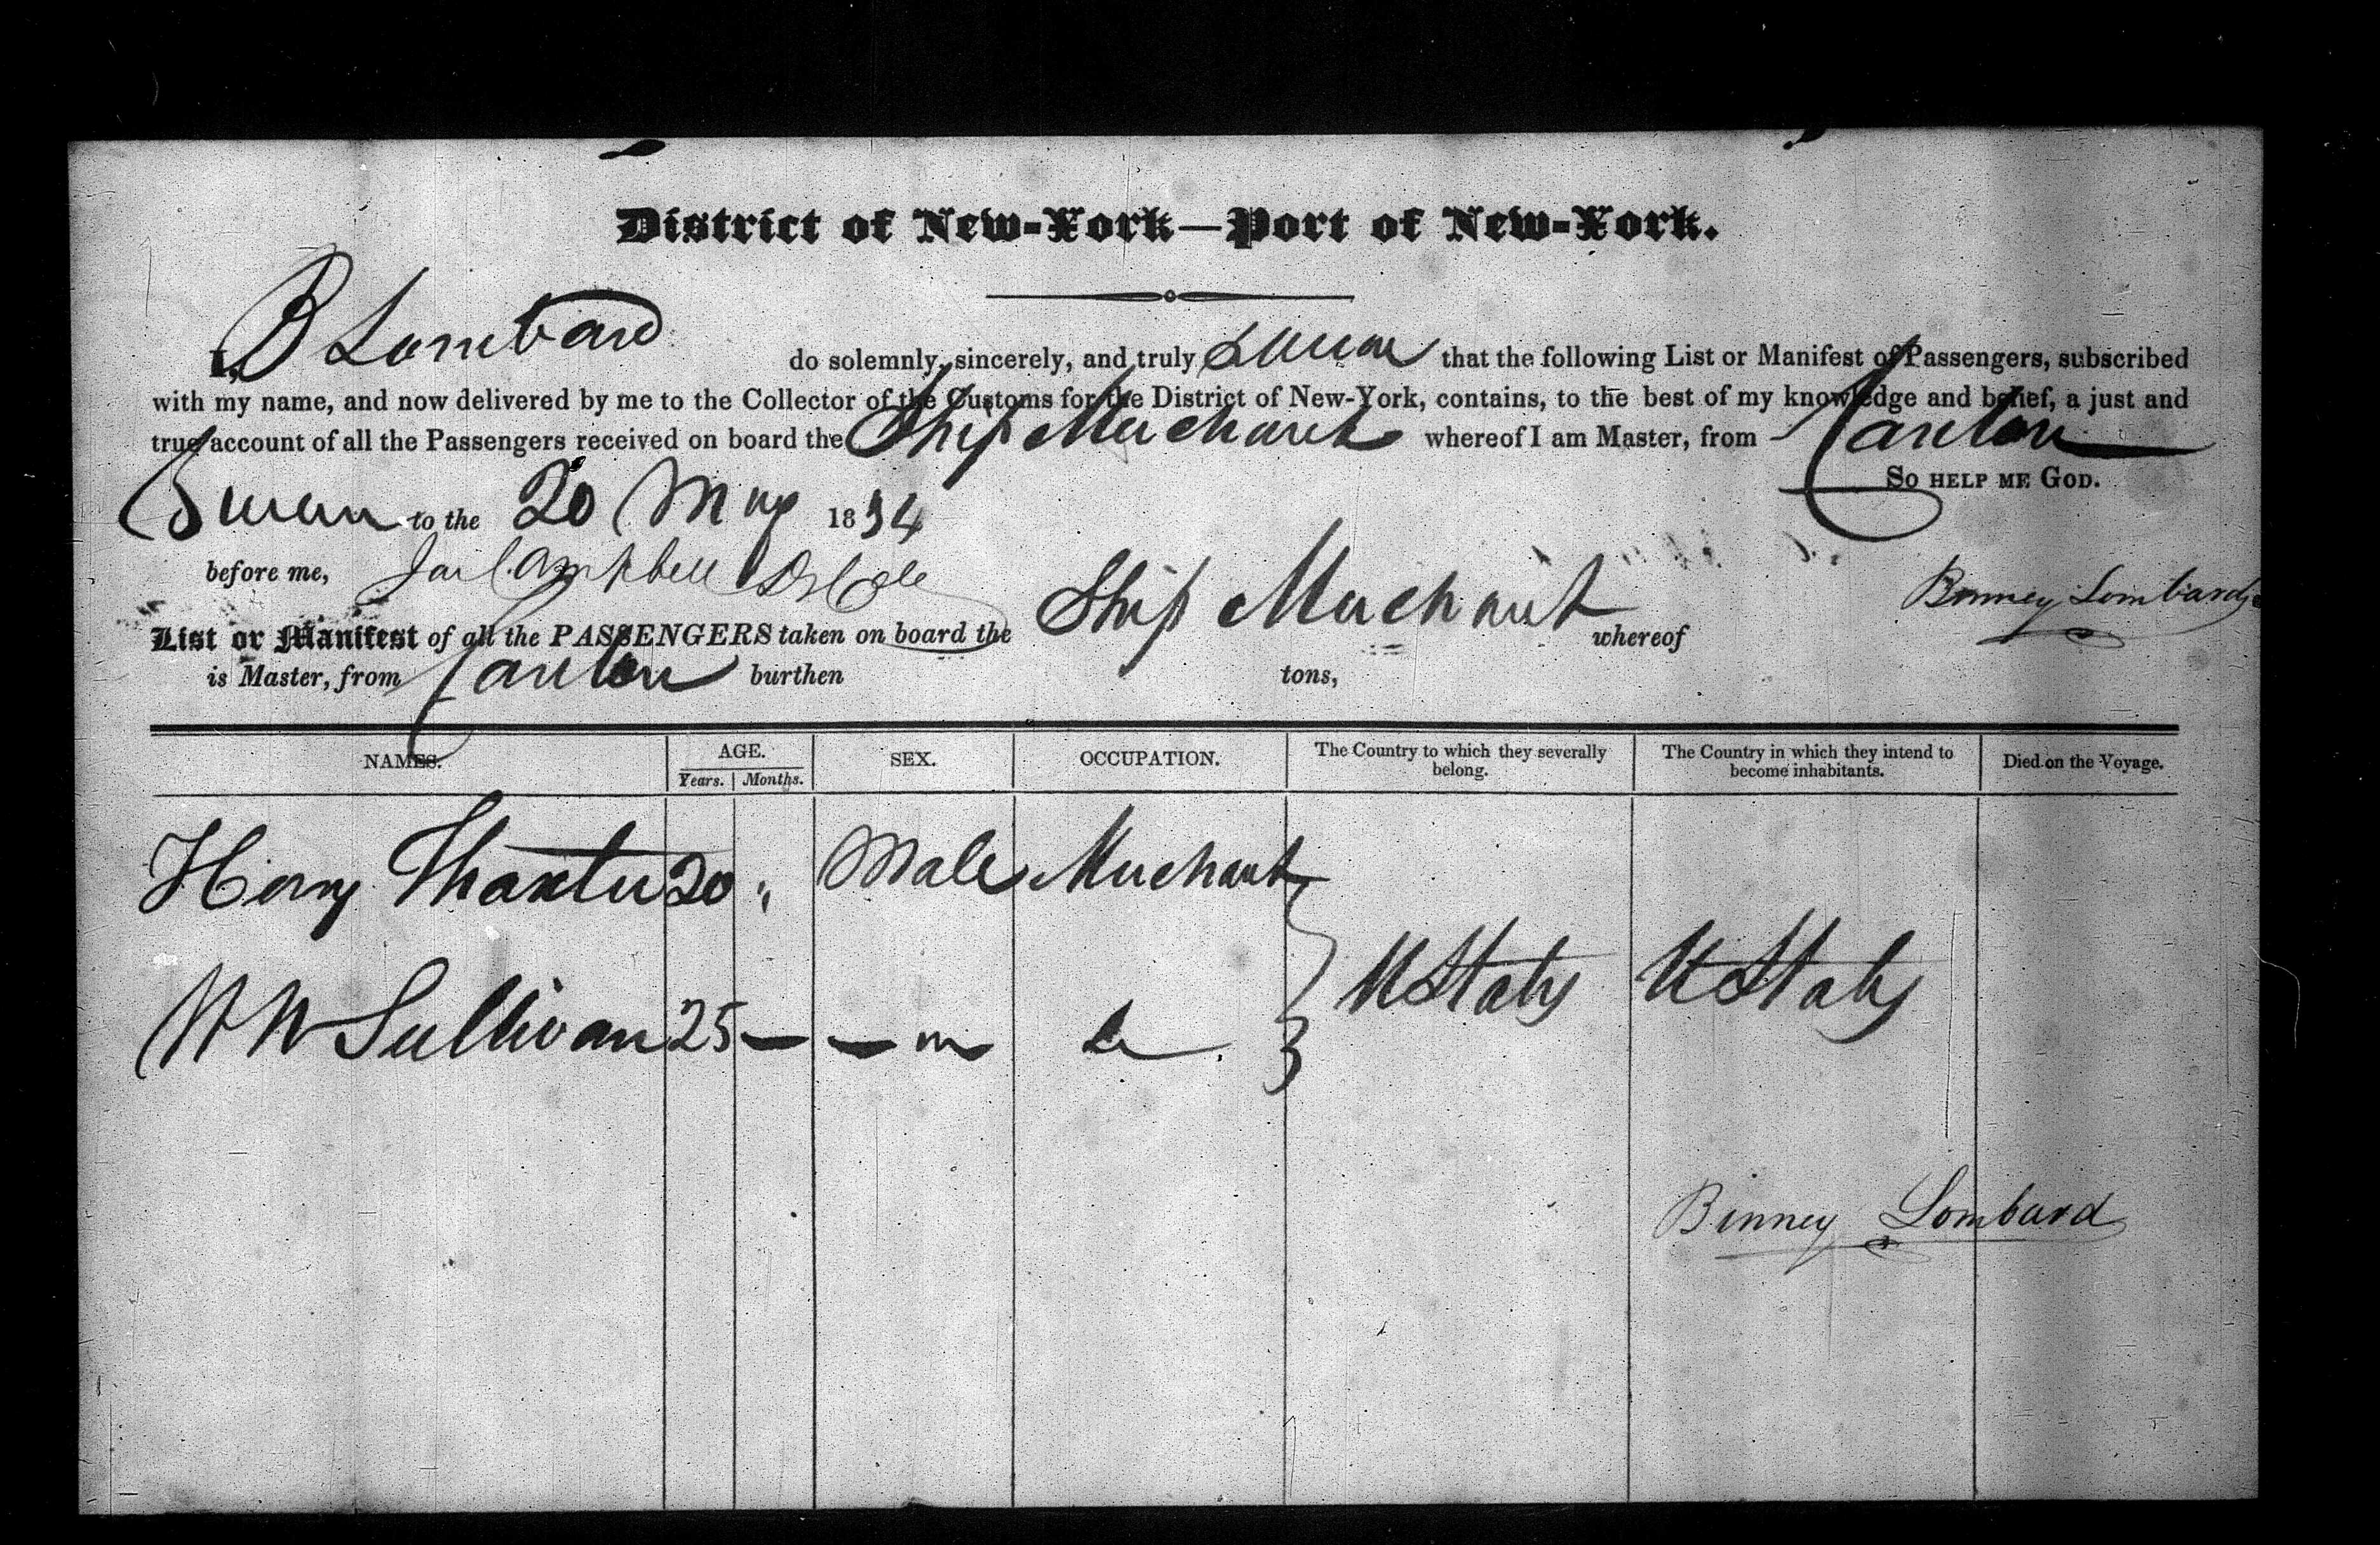 District of New-York—Port of New-York.
I, B Lombard do solemnly, sincerely, and truly swear that the following List or Manifest of Passengers, subscribed
with my name, and now delivered by me to the Collector of the Customs for the District of New-York, contains, to the best of my knowledge and belief, a just and
true account of all the Passengers received on board the Ship Merchant whereof I am Master, from Canton
So HELP ME GOD.
Sworn to the 20 May 1834
before me, Jas Campbell
Binney Lombard
List or Manifest of all the PASSENGERS taken on board the Ship Merchant whereof
is Master, from Canton burthen tons,
NAMES. AGE. SEX. OCCUPATION. The Country to which they severally belong. The Country in which they intend to become inhabitants. Died on the Voyage.
Years. Months.
Henry Thaxter 20 " Male Merchant
U States U States
W W Sullivan 25 — — m do
Binney Lombard